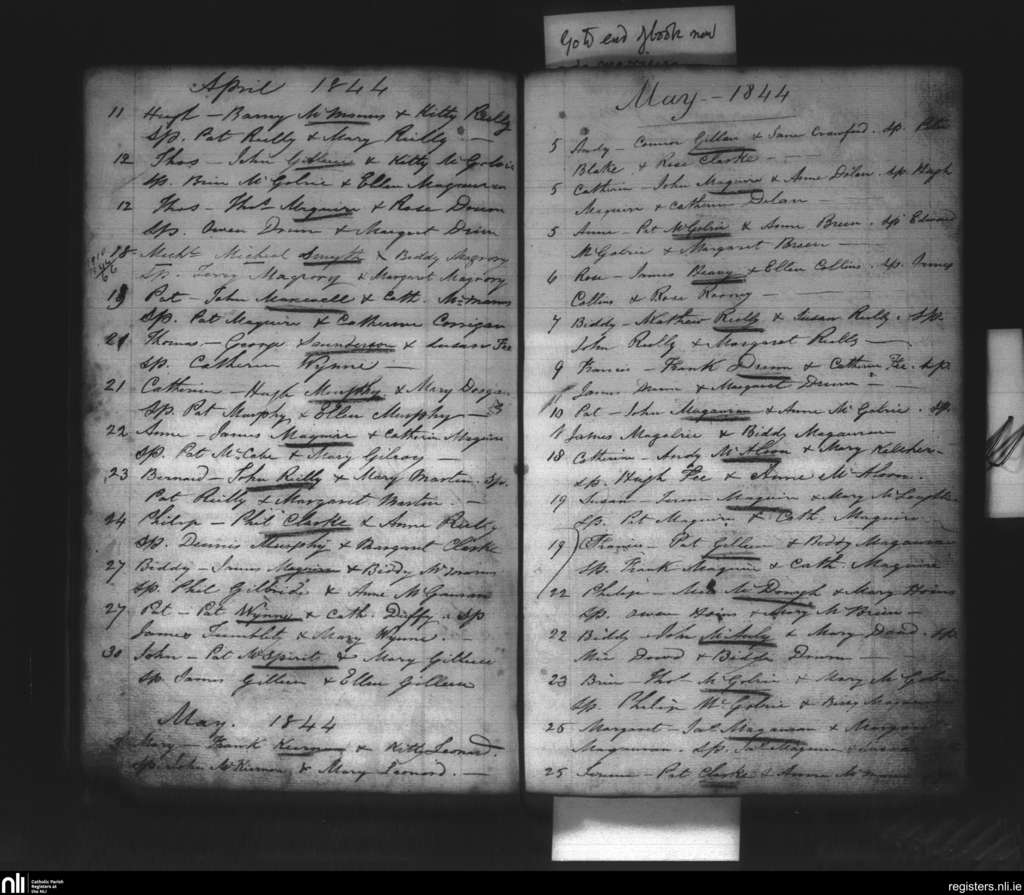 Go to end of book now
April 1844
11 Hugh - Barny McManus & Kitty Reilly
Sp. Pat Reilly & Mary Reilly. -
12 Thos - John Gilleen & Kitty McGolric
Sp. Brien McGolric & Ellen Magauran
12 Thos - Thos Maguire & Rose Drum
Sp. Owen Drum & Margret Drum
18 Michl Micheal Smyth & Biddy Magrory
Sp. Terry Magrory & Margaret Magrory
19 Pat - John & Cath. McManus
Sp. Pat Maguire & Catherine Corrigan
21 Thomas - George Saunderson & Susan Fee
Sp. Catherin Wynne -
21 Catherine - Hugh Murphy & Mary
Sp. Pat Murphy & Ellen Murphy -
22 Anne - James Maguire & Catherin Maguire
Sp. Pat McCabe & Mary Gilroy -
23 Bernard - John Reilly & Mary Martin. Sp.
Pat Reilly & Margaret Martin -
24 Philip - Phil Clarke & Anne Reilly
Sp. Dennis Murphy & Margaret Clarke
27 Biddy - James Maguire & Biddy McManus
Sp. Phil Gilbride & Anne McGauran
27 Pat - Pat Wynne & Cath. Duffy. Sp
James Trimblet & Mary Wynne. -
30 John - Pat McSpirit & Mary Gilleen
Sp. James Gilleen & Ellen Gilleen
May. 1844
Mary - Frank Kiernan & Kitty Leonard.
Sp. John McKiernan & Mary Leonard. -
May - 1844
5 Andy - Connor Gilleen & Jane Crawford. Sp. Peter
Blake & Rose Clarke -
5 Catherin - John Maguire & Anne Dolan. Sp. Hugh
Maguire & Catherin Dolan -
5 Anne - Pat McGolric & Anne Breen. Sp. Edward
McGolric & Margaret Breen -
6 Rose - James & Ellen Collins. Sp. James
Collins & Rose Rooney -
7 Biddy - Mathew Reilly & Susan Reilly. Sp.
John Reilly & Margaret Reilly -
9 Francis - Frank Drum & Catherin Fee. Sp.
James Drum & Margaret Drum -
10 Pat - John Magauran & Anne McGolric. Sp.
James Magolric & Biddy Magauran
18 Catherin - Andy McAloon & Mary Kelleher -
Sp. Hugh Fee & Anne McAloon.
19 Susan - James Maguire & Mary McLoughlin
Sp. Pat Maguire & Cath. Maguire
19 Francis - Pat Gilleen & Biddy Magauran
Sp. Frank Maguire & Cath Maguire
22 Philip - McDonagh & Mary
Sp. Owen & Mary McBrien -
22 Biddy - John & Mary Dowd. Sp.
Mic Dowd & Biddy -
23 Brien - Thos McGolric & Mary McGolric
Sp. Philip McGolric &
25 Margaret - Jas Magauran & Margaret
Magauran. Sp. Jas Maguire & Susan
25 - Pat Clarke & Anne McManus
nli Catholic Parish
Registers at
the NLI
registers.nli.ie